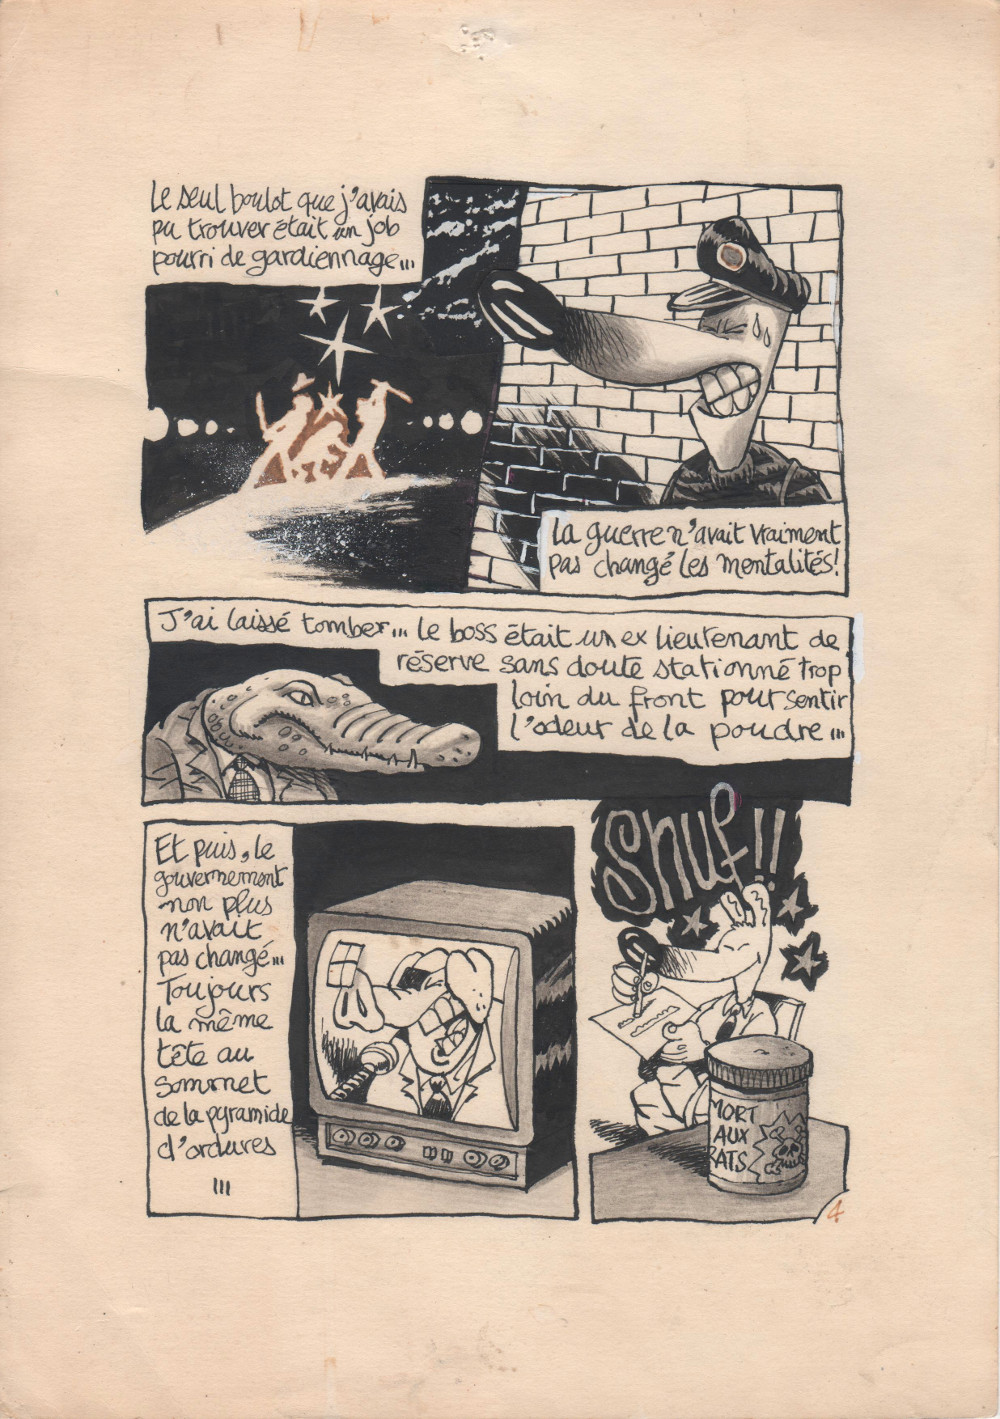 Le seul boulot que j'avais
pu trouver était un job
pourri de gardiennage...
La guerre n'avait vraiment
pas changé les mentalités!
J'ai laissé tomber... Le boss était un ex lieutenant de
réserve sans doute stationné trop
loin du front pour sentir
l'odeur de la poudre...
Et puis, le
gouvernement
non plus
n'avait
pas changé...
Toujours
la même
tête au
sommet
de la pyramide
d'ordures
...
Snuf!!
MORT
AUX
RATS
4